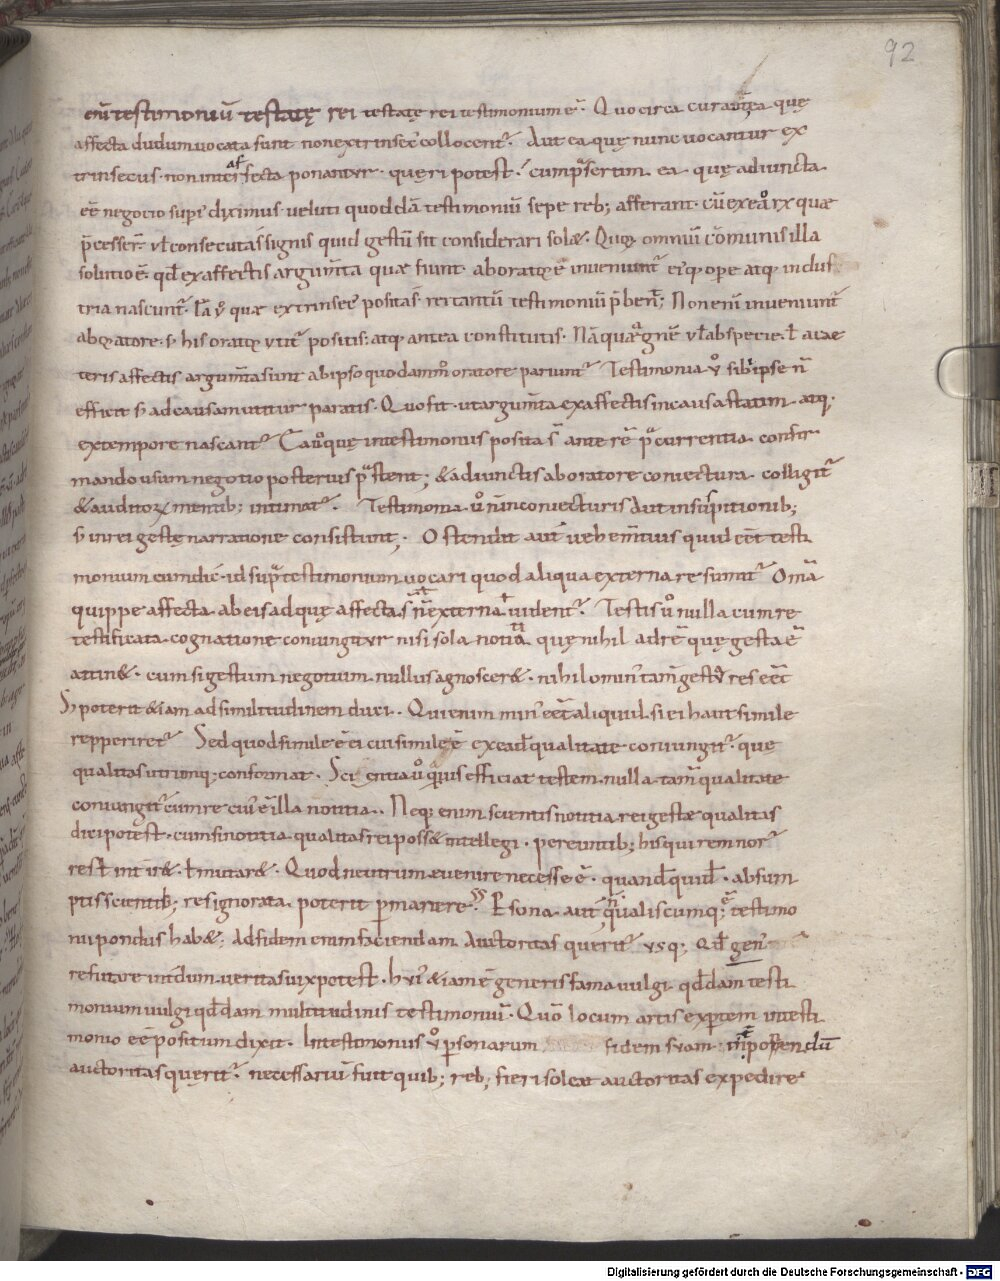 92
eni testimoniū testatę rei testatę rei testimonium ē. Quocirca cur aut ea quę
affecta dudum uocata sunt non extrinsec̾ collocent᷑. Aut ea quę nunc uocantur ex
trinsecus non inter affecta ponantur. quęri potest. cum p̄sertim ea quę adiuncta
eē negocio supi᷑ diximus ueluti quoddā testimoniū sepe reb; afferant. cū ex eoꝝ quae
p̄cesser̄ ł consecuta s̄ signis quid gestū sit considerari solet. Quoꝝ omniū cōmunis illa
solutio ē. qđ ex affectis argum̄ta quae fiunt ab oratore inueniunt᷑ eiꝰq; ope atq; indus
tria nascunt᷑. Ea ů quae extrinsec̾ posita s̄ rei tantū testimoniū p̄bent; Non enī inueniunt᷑
ab oratore. s̄ his orator utit᷑ positis. atq; antea constitutis. Nā quae a gn̄e ł ab specie ł a cae
teris affectis argum̄ta sunt ab ipso quodam̄o oratore pariunt᷑ Testimonia ů sibi ipse n̄
efficit s̄ ad causam utitur paratis. Quo fit. ut argum̄ta ex affectis in causa statim. atq;
ex tempore nascant᷑ Ea ůo quę in testimoniis posita s̄ ante rē p̄currentia confir
mando usum negotio posterius p̄stent; & adiunctis ab oratore coniectura colligit᷑
& auditoꝝ mentib; intimat᷑. Testimonia ůo n̄ in coniecturis aut in suspitionib;
s̄ in rei gestę narratione consistunt;. Ostendit aut̄ uehem̄tius quid eēt testi
monium cum dic̄. id sup̄ testimonium uocari quod aliqua externa re sumit᷑ Om̄a
quippe affecta ab eis ad quę affecta s̄ n̄ externa uident᷑. Testis ůo nulla cum re
testificata cognatione coniungitur nisi sola notitia. quę nihil ad rē quę gesta ē
attin&. cum si gestum negotium nullus agnoscer&. nihilomin̾ tam̄ gesta res eēt
S; poterit & iam ad similitudinem duci. Qui enim min̾ eēt aliquid si ei haut simile
repperiret᷑ Sed quod simile ē ei cui simile ē ex eađ qualitate coniungit᷑. quę
qualitas utrumq; conformat. Scientia ůo q̄muis efficiat testem. nulla tam̄ qualitate
coniungit᷑ cum re cui̾ ē illa notitia.. Neq; enim scientis notitia rei gestae qualitas
dici potest. cum si notitia qualitas rei poss& intellegi. pereuntib; his qui rem nor̄
res ł interir& ł mutar&. Quod neutrum euenire necesse ē. quandoquidē. absum
ptis scientib; res ignorata poterit p̱manere Psona aut̄ n̄ qualiscumq; ē testimo
nii pondus hab&; Ad fidem enim faciendam auctoritas querit᷑ usq; Qđ gen̾
refutare interdum ueritas uix potest. hui̾ & iam ē generis fama uulgi. qđdam testi
monium uulgi qđdam multitudinis testimoniū. Quō locum artis expertem in testi
monio eē positum dixit. In testimoniis ů psonarum fidem suam imponendū
auctoritas querit᷑. necessariū fuit quib; reb; fieri soleat auctoritas expedire
Digitalisierung gefördert durch die Deutsche Forschungsgemeinschaft - DFG